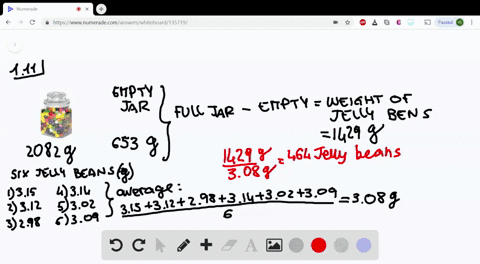 https://www.numerade.com/answers/whiteboard/135719/
Paused
1.11
EMPTY
JAR
653 g
2082 g
FULL JAR - EMPTY = WEIGHT OF
JELLY BENS
= 1429 g
1429 g
3.08 g
= 464 Jelly beans
SIX JELLY BEANS (g)
1) 3.15 4) 3.14
2) 3.12 5) 3.02
3) 2.98 6) 3.09
average:
3.15 + 3.12 + 2.98 + 3.14 + 3.02 + 3.09
6
= 3.08 g